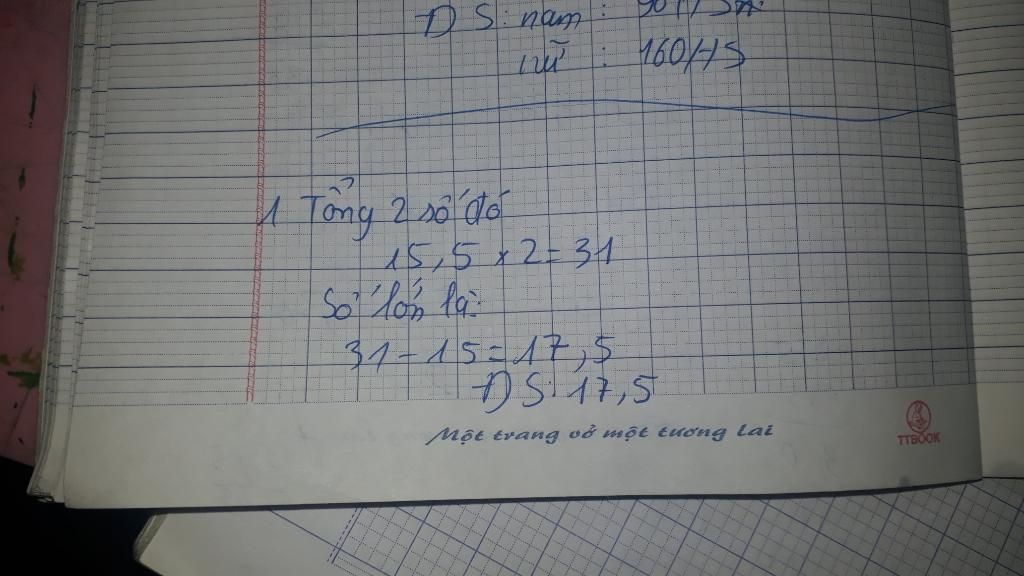 ĐS: nam :
nữ : 160 HS
1 Tổng 2 số đó
15,5 x 2 = 31
Số lớn là:
31 - 15 = 17,5
ĐS: 17,5
Một trang vở một tương lai
TTBOOK